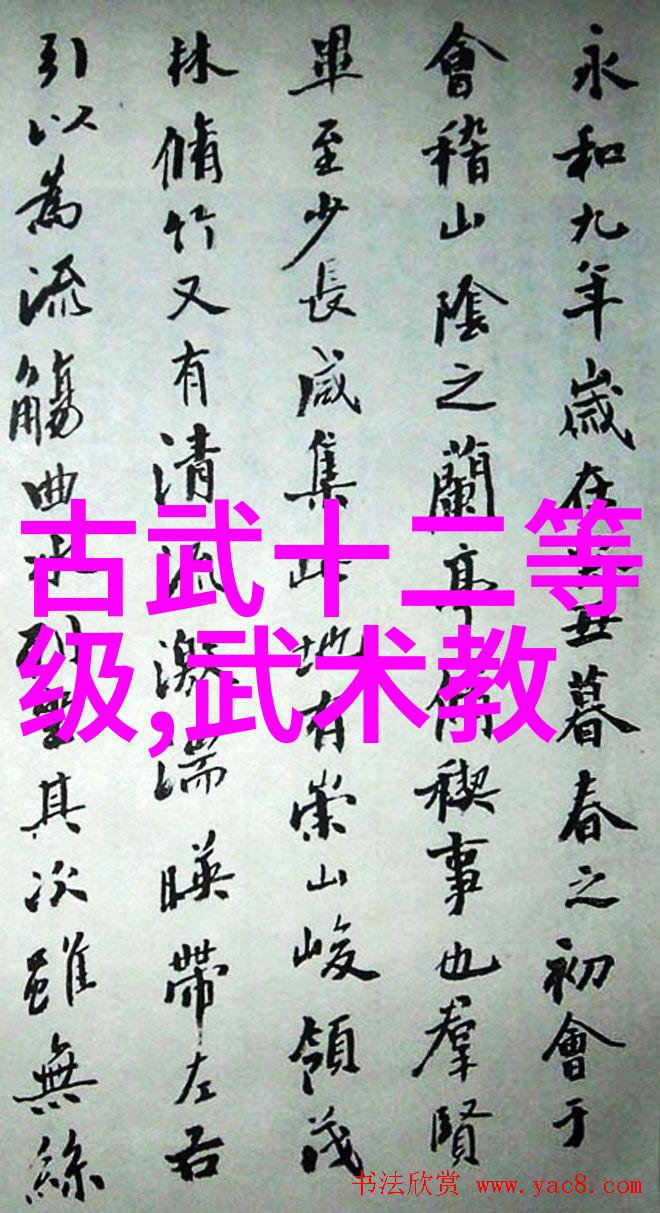 永和九年歲在丑暮春之初會于
會稽山陰之蘭亭脩禊事也羣賢
畢至少長咸集此地有崇山峻領茂
林脩竹又有清流激湍暎帶左右
引以為流觴曲水列坐其次雖無絲
古武十二等
级,武术教
书法欣赏 www.yac8.com